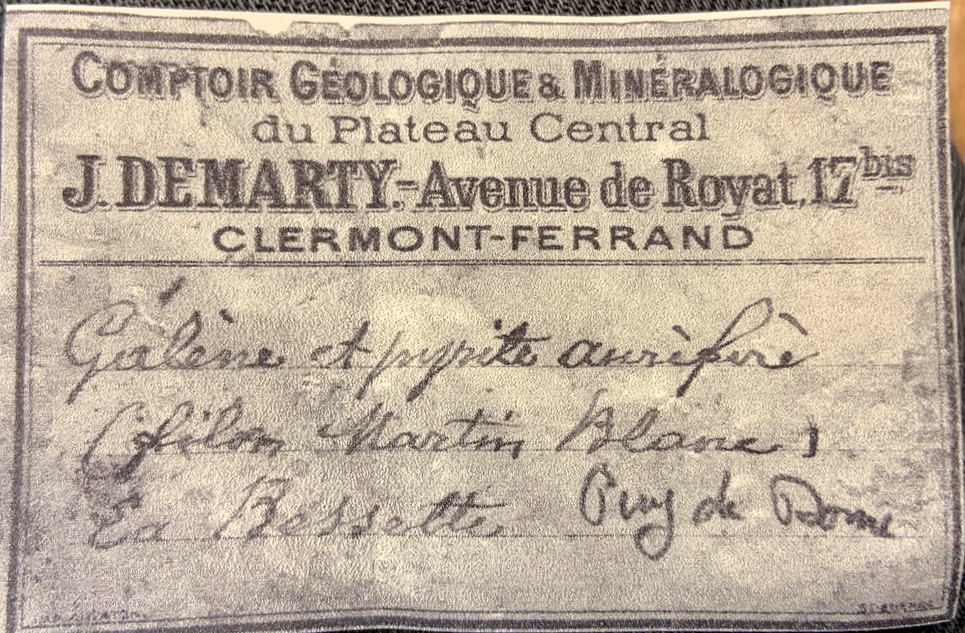 COMPTOIR GÉOLOGIQUE & MINÉRALOGIQUE
du Plateau Central
J. DEMARTY.-Avenue de Royat, 17 bis
CLERMONT-FERRAND
Galène et pyrite aurifère
(filon Martin Blanc)
La Bessette Puy de Dome